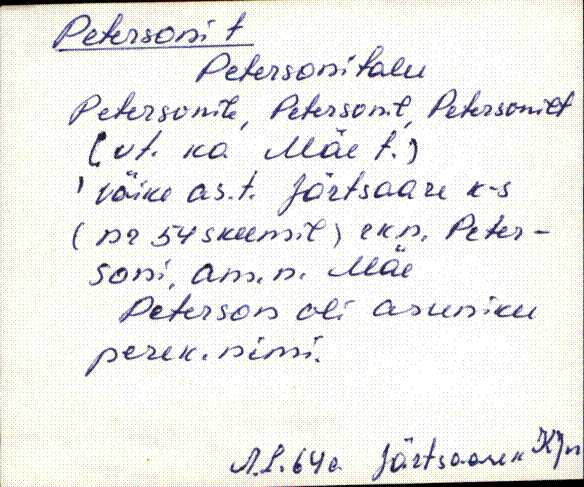 Petersoni t
Petersonitalu
Petersonile, Petersonil, Petersonilt
(vt. ka Mäe t.)
väike as.t. Järtsaare k-s
(nr 54 skeemil) rk.n. Peter-
soni, am.n. Mäe
Peterson oli asuniku
perek.nimi.
Järtsaare k